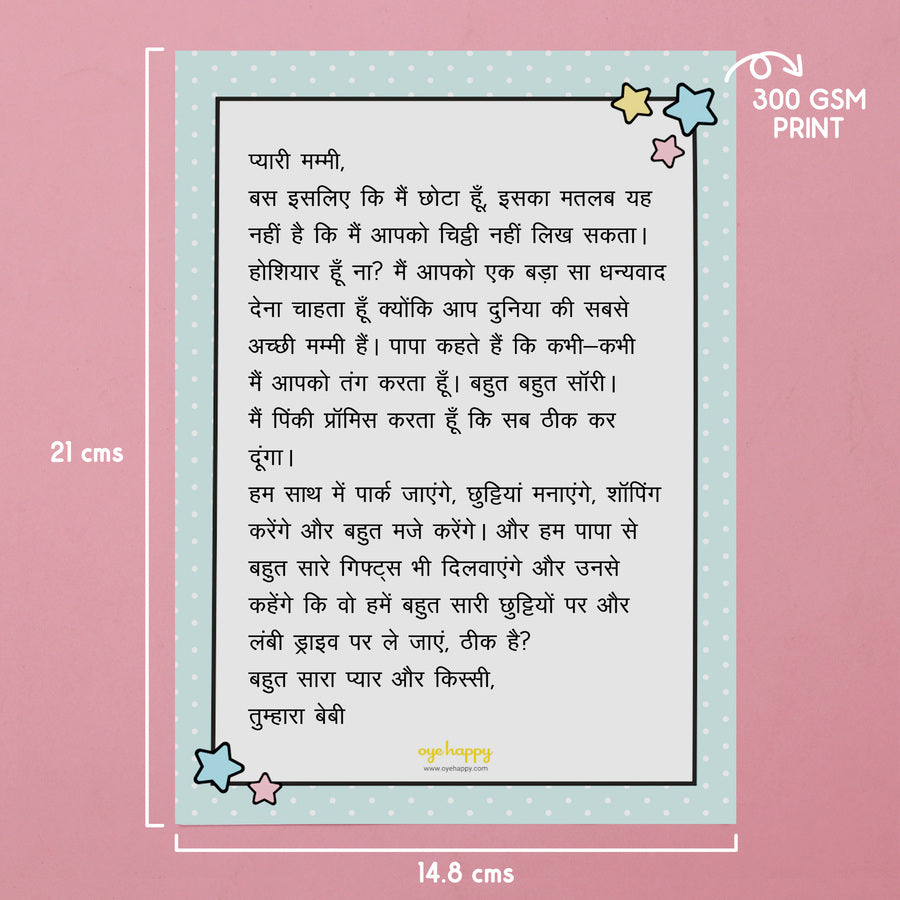 300 GSM
PRINT
प्यारी मम्मी,
बस इसलिए कि मैं छोटा हूँ, इसका मतलब यह
नहीं है कि मैं आपको चिट्ठी नहीं लिख सकता।
होशियार हूँ ना? मैं आपको एक बड़ा सा धन्यवाद
देना चाहता हूँ क्योंकि आप दुनिया की सबसे
अच्छी मम्मी हैं। पापा कहते हैं कि कभी–कभी
मैं आपको तंग करता हूँ। बहुत बहुत सॉरी।
मैं पिंकी प्रॉमिस करता हूँ कि सब ठीक कर
दूंगा।
हम साथ में पार्क जाएंगे, छुट्टियां मनाएंगे, शॉपिंग
करेंगे और बहुत मजे करेंगे। और हम पापा से
बहुत सारे गिफ्ट्स भी दिलवाएंगे और उनसे
कहेंगे कि वो हमें बहुत सारी छुट्टियों पर और
लंबी ड्राइव पर ले जाएं, ठीक है?
बहुत सारा प्यार और किस्सी,
तुम्हारा बेबी
oye happy
www.oyehappy.com
21 cms
14.8 cms